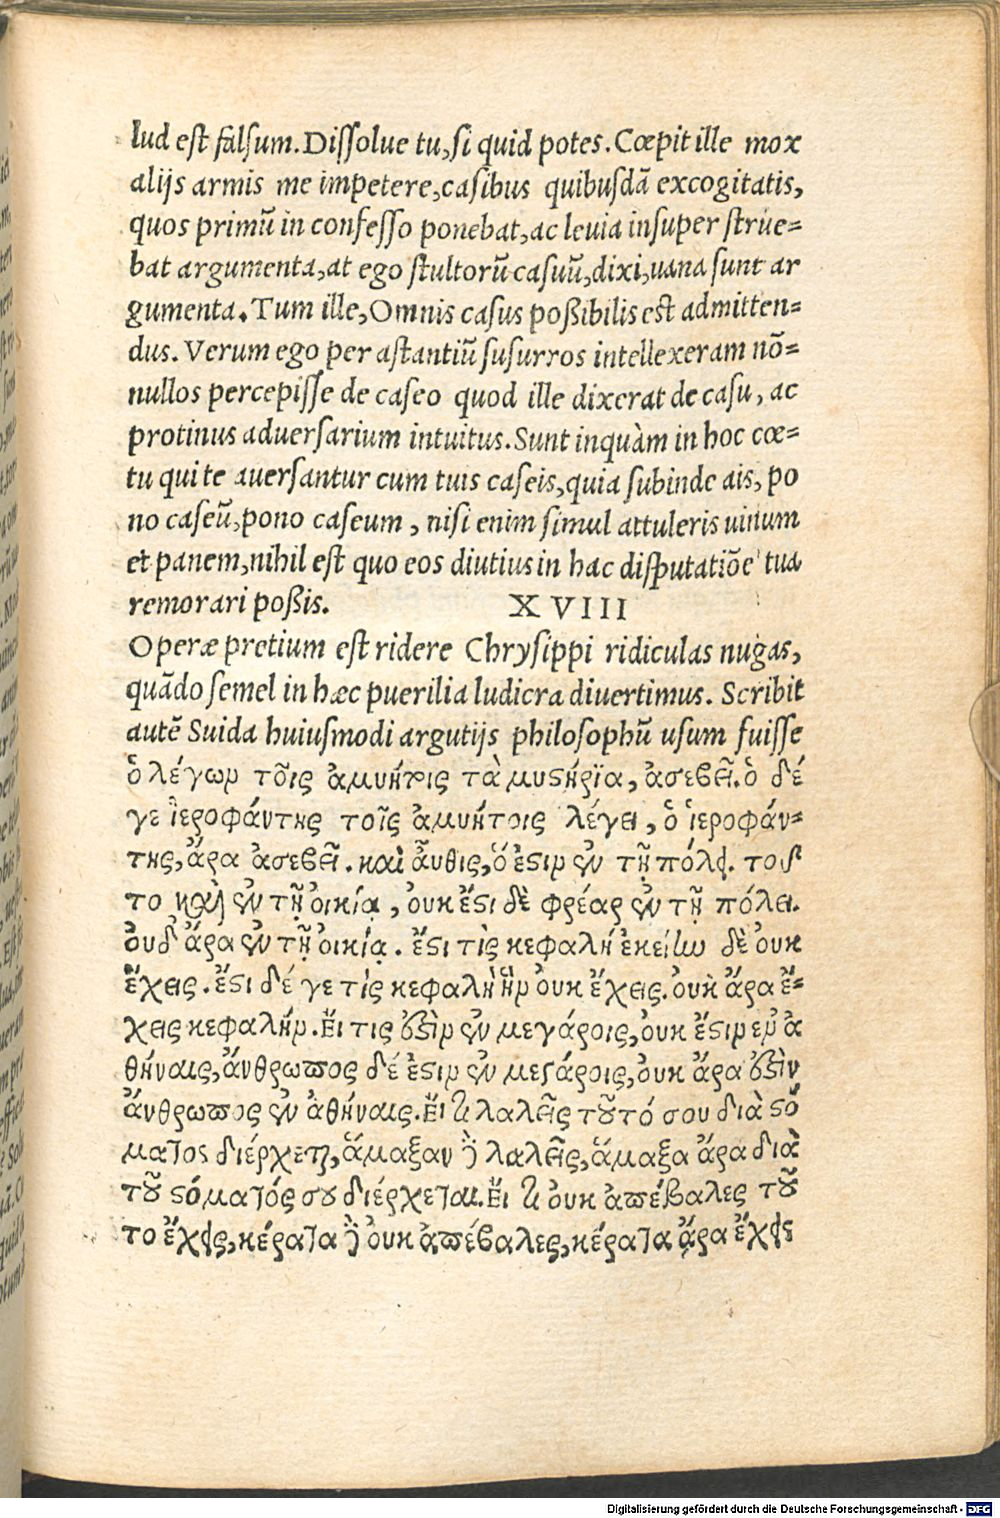 lud est falsum. Dissolue tu, si quid potes. Cœpit ille mox
alijs armis me impetere, casibus quibusdã excogitatis,
quos primũ in confesso ponebat, ac leuia insuper strue=
bat argumenta, at ego stultorũ casuũ, dixi, uana sunt ar
gumenta. Tum ille, Omnis casus poßibilis est admitten=
dus. Verum ego per astantiũ susurros intellexeram nõ=
nullos percepisse de caseo quod ille dixerat de casu, ac
protinus aduersarium intuitus. Sunt inquàm in hoc cœ=
tu qui te auersantur cum tuis caseis, quia subinde ais, po
no caseũ, pono caseum, nisi enim simul attuleris uinum
et panem, nihil est quo eos diutius in hac disputatiõe tua
remorari poßis. XVIII
Operæ pretium est ridere Chrysippi ridiculas nugas,
quãdo semel in hæc puerilia ludicra diuertimus. Scribit
autẽ Suida huiusmodi argutijs philosophũ usum fuisse
ὁ λέγωρ τοῖς ἀμυήτοις τὰ μυϛήρϊα, ἀσεβεῖ. ὁ δέ
γε ἱεροφάντης τοῖς ἀμυήτοις λέγει, ὁ ἱεροφάν=
της, ἄρα ἀσεβεῖ. καὶ ἆυθις, ὅ ἐϛιρ ἐν τῇ πόλει. τοῦ
το καὶ ἐν τῇ ὀικίᾳ, ὀυκ ἔϛι δὲ φρέαρ ἐν τῇ πόλει.
ὀυδ ἄρα ἐν τῇ ὀικίᾳ. ἔϛι τὶς κεφαλή ἐκείνω δὲ ὀυκ
ἔχεις. ἔϛι δέ γε τὶς κεφαλὴ ἣρ ὀυκ ἔχεις. ὀυκ ἄρα ἔ=
χεις κεφαλήρ. Ἔι τις ἐϛὶρ ἐν μεγάροις, ὀυκ ἔϛιρ ερ ἀ
θήναις, ἄνθρωπος δέ ἐϛιρ ἐν μεγάροις, ὀυκ ἄρα ἐϛὶν
ἄνθρωπος ἐν ἀθήναις. Ἔι τι λαλεῖς τοῦτό σου διὰ ϛό
ματος διέρχεται, ἅμαξαν δὲ λαλεῖς, ἅμαξα ἄρα διὰ
τοῦ ϛόματός σου διέρχεται. Ἔι τι ὀυκ ἀπέβαλες τοῦ
το ἔχεις, κέρατα δὲ ὀυκ ἀπέβαλες, κέρατα ἄρα ἔχεις
Digitalisierung gefördert durch die Deutsche Forschungsgemeinschaft - DFG